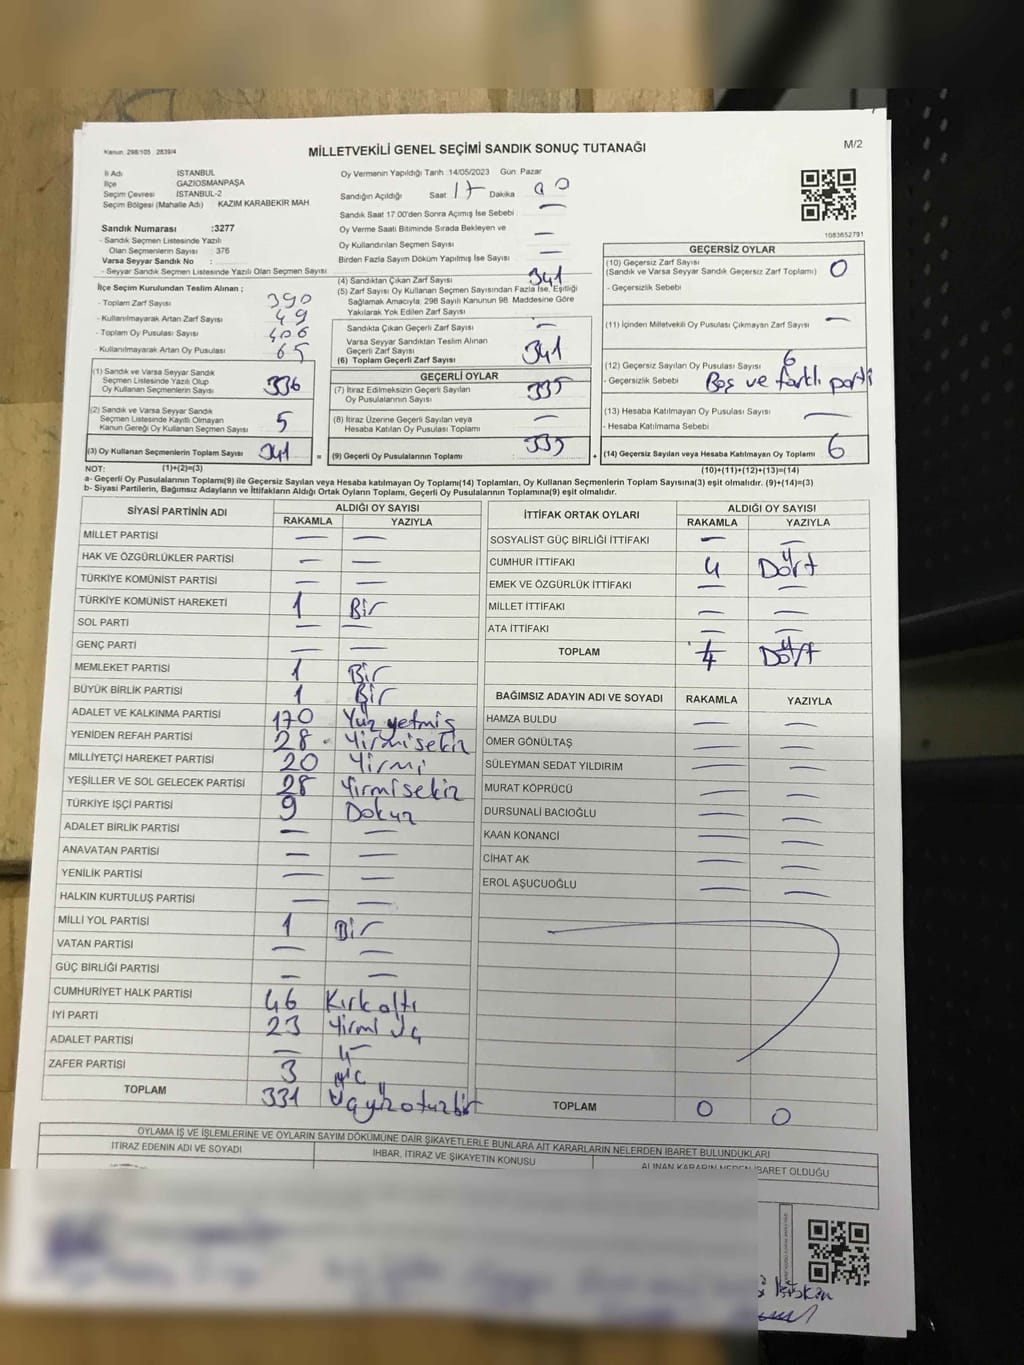 Kanun 298/105 2839/4
MİLLETVEKİLİ GENEL SEÇİMİ SANDIK SONUÇ TUTANAĞI
M/2
İl Adı : İSTANBUL
İlçe : GAZİOSMANPAŞA
Seçim Çevresi : İSTANBUL-2
Seçim Bölgesi (Mahalle Adı) : KAZIM KARABEKİR MAH.
Sandık Numarası :3277
- Sandık Seçmen Listesinde Yazılı
Olan Seçmenlerin Sayısı : 376
Varsa Seyyar Sandık No :
- Seyyar Sandık Seçmen Listesinde Yazılı Olan Seçmen Sayısı
Oy Vermenin Yapıldığı Tarih 14/05/2023 Gün Pazar
Sandığın Açıldığı Saat 17 Dakika 00
Sandık Saat 17:00'den Sonra Açımış İse Sebebi —
Oy Verme Saati Bitiminde Sırada Bekleyen ve —
Oy Kullandırılan Seçmen Sayısı
Birden Fazla Sayım Döküm Yapılmış İse Sayısı —
1083652791
İlçe Seçim Kurulundan Teslim Alınan ;
- Toplam Zarf Sayısı 390
- Kullanılmayarak Artan Zarf Sayısı 49
- Toplam Oy Pusulası Sayısı 406
- Kullanılmayarak Artan Oy Pusulası 65
(1) Sandık ve Varsa Seyyar Sandık
Seçmen Listesinde Yazılı Olup
Oy Kullanan Seçmenlerin Sayısı 336
(2) Sandık ve Varsa Seyyar Sandık
Seçmen Listesinde Kayıtlı Olmayan
Kanun Gereği Oy Kullanan Seçmen Sayısı 5
(3) Oy Kullanan Seçmenlerin Toplam Sayısı 341
(4) Sandıktan Çıkan Zarf Sayısı 341
(5) Zarf Sayısı Oy Kullanan Seçmen Sayısından Fazla İse, Eşitliği
Sağlamak Amacıyla, 298 Sayılı Kanunun 98. Maddesine Göre
Yakılarak Yok Edilen Zarf Sayısı
Sandıkta Çıkan Geçerli Zarf Sayısı —
Varsa Seyyar Sandıktan Teslim Alınan
Geçerli Zarf Sayısı
(6) Toplam Geçerli Zarf Sayısı 341
GEÇERLİ OYLAR
(7) İtiraz Edilmeksizin Geçerli Sayılan
Oy Pusulalarının Sayısı 335
(8) İtiraz Üzerine Geçerli Sayılan veya
Hesaba Katılan Oy Pusulası Toplamı —
= (9) Geçerli Oy Pusulalarının Toplamı 335 +
GEÇERSİZ OYLAR
(10) Geçersiz Zarf Sayısı
(Sandık ve Varsa Seyyar Sandık Geçersiz Zarf Toplamı) 0
- Geçersizlik Sebebi
(11) İçinden Milletvekili Oy Pusulası Çıkmayan Zarf Sayısı —
(12) Geçersiz Sayılan Oy Pusulası Sayısı 6
- Geçersizlik Sebebi Boş ve farklı parti
(13) Hesaba Katılmayan Oy Pusulası Sayısı —
- Hesaba Katılmama Sebebi
(14) Geçersiz Sayılan veya Hesaba Katılmayan Oy Toplamı 6
NOT: (1)+(2)=(3) (10)+(11)+(12)+(13)=(14)
a- Geçerli Oy Pusulalarının Toplamı(9) ile Geçersiz Sayılan veya Hesaba katılmayan Oy Toplamı(14) Toplamları, Oy Kullanan Seçmenlerin Toplam Sayısına(3) eşit olmalıdır. (9)+(14)=(3)
b- Siyasi Partilerin, Bağımsız Adayların ve İttifakların Aldığı Ortak Oyların Toplamı, Geçerli Oy Pusulalarının Toplamına(9) eşit olmalıdır.
SİYASİ PARTİNİN ADI ALDIĞI OY SAYISI
RAKAMLA YAZIYLA
MİLLET PARTİSİ — —
HAK VE ÖZGÜRLÜKLER PARTİSİ — —
TÜRKİYE KOMÜNİST PARTİSİ — —
TÜRKİYE KOMÜNİST HAREKETİ 1 Bir
SOL PARTİ — —
GENÇ PARTİ — —
MEMLEKET PARTİSİ 1 Bir
BÜYÜK BİRLİK PARTİSİ 1 Bir
ADALET VE KALKINMA PARTİSİ 170 Yüz yetmiş
YENİDEN REFAH PARTİSİ 28 - Yirmisekiz
MİLLİYETÇİ HAREKET PARTİSİ 20 Yirmi
YEŞİLLER VE SOL GELECEK PARTİSİ 28 Yirmisekiz
TÜRKİYE İŞÇİ PARTİSİ 9 Dokuz
ADALET BİRLİK PARTİSİ — —
ANAVATAN PARTİSİ — —
YENİLİK PARTİSİ — —
HALKIN KURTULUŞ PARTİSİ — —
MİLLİ YOL PARTİSİ 1 Bir
VATAN PARTİSİ — —
GÜÇ BİRLİĞİ PARTİSİ — —
CUMHURİYET HALK PARTİSİ 46 Kırkaltı
İYİ PARTİ 23 Yirmi üç
ADALET PARTİSİ —
ZAFER PARTİSİ 3 üç
TOPLAM 331 Üçyüzotuzbir
İTTİFAK ORTAK OYLARI ALDIĞI OY SAYISI
RAKAMLA YAZIYLA
SOSYALİST GÜÇ BİRLİĞİ İTTİFAKI — —
CUMHUR İTTİFAKI 4 Dört
EMEK VE ÖZGÜRLÜK İTTİFAKI — —
MİLLET İTTİFAKI — —
ATA İTTİFAKI — —
TOPLAM 4 Dört
BAĞIMSIZ ADAYIN ADI VE SOYADI RAKAMLA YAZIYLA
HAMZA BULDU — —
ÖMER GÖNÜLTAŞ — —
SÜLEYMAN SEDAT YILDIRIM — —
MURAT KÖPRÜCÜ — —
DURSUNALİ BACIOĞLU — —
KAAN KONANCİ — —
CİHAT AK — —
EROL AŞUCUOĞLU — —
TOPLAM 0 0
OYLAMA İŞ VE İŞLEMLERİNE VE OYLARIN SAYIM DÖKÜMÜNE DAİR ŞİKAYETLERLE BUNLARA AİT KARARLARIN NELERDEN İBARET BULUNDUKLARI
İTİRAZ EDENİN ADI VE SOYADI İHBAR, İTİRAZ VE ŞİKAYETİN KONUSU ALINAN KARARIN NEDEN İBARET OLDUĞU